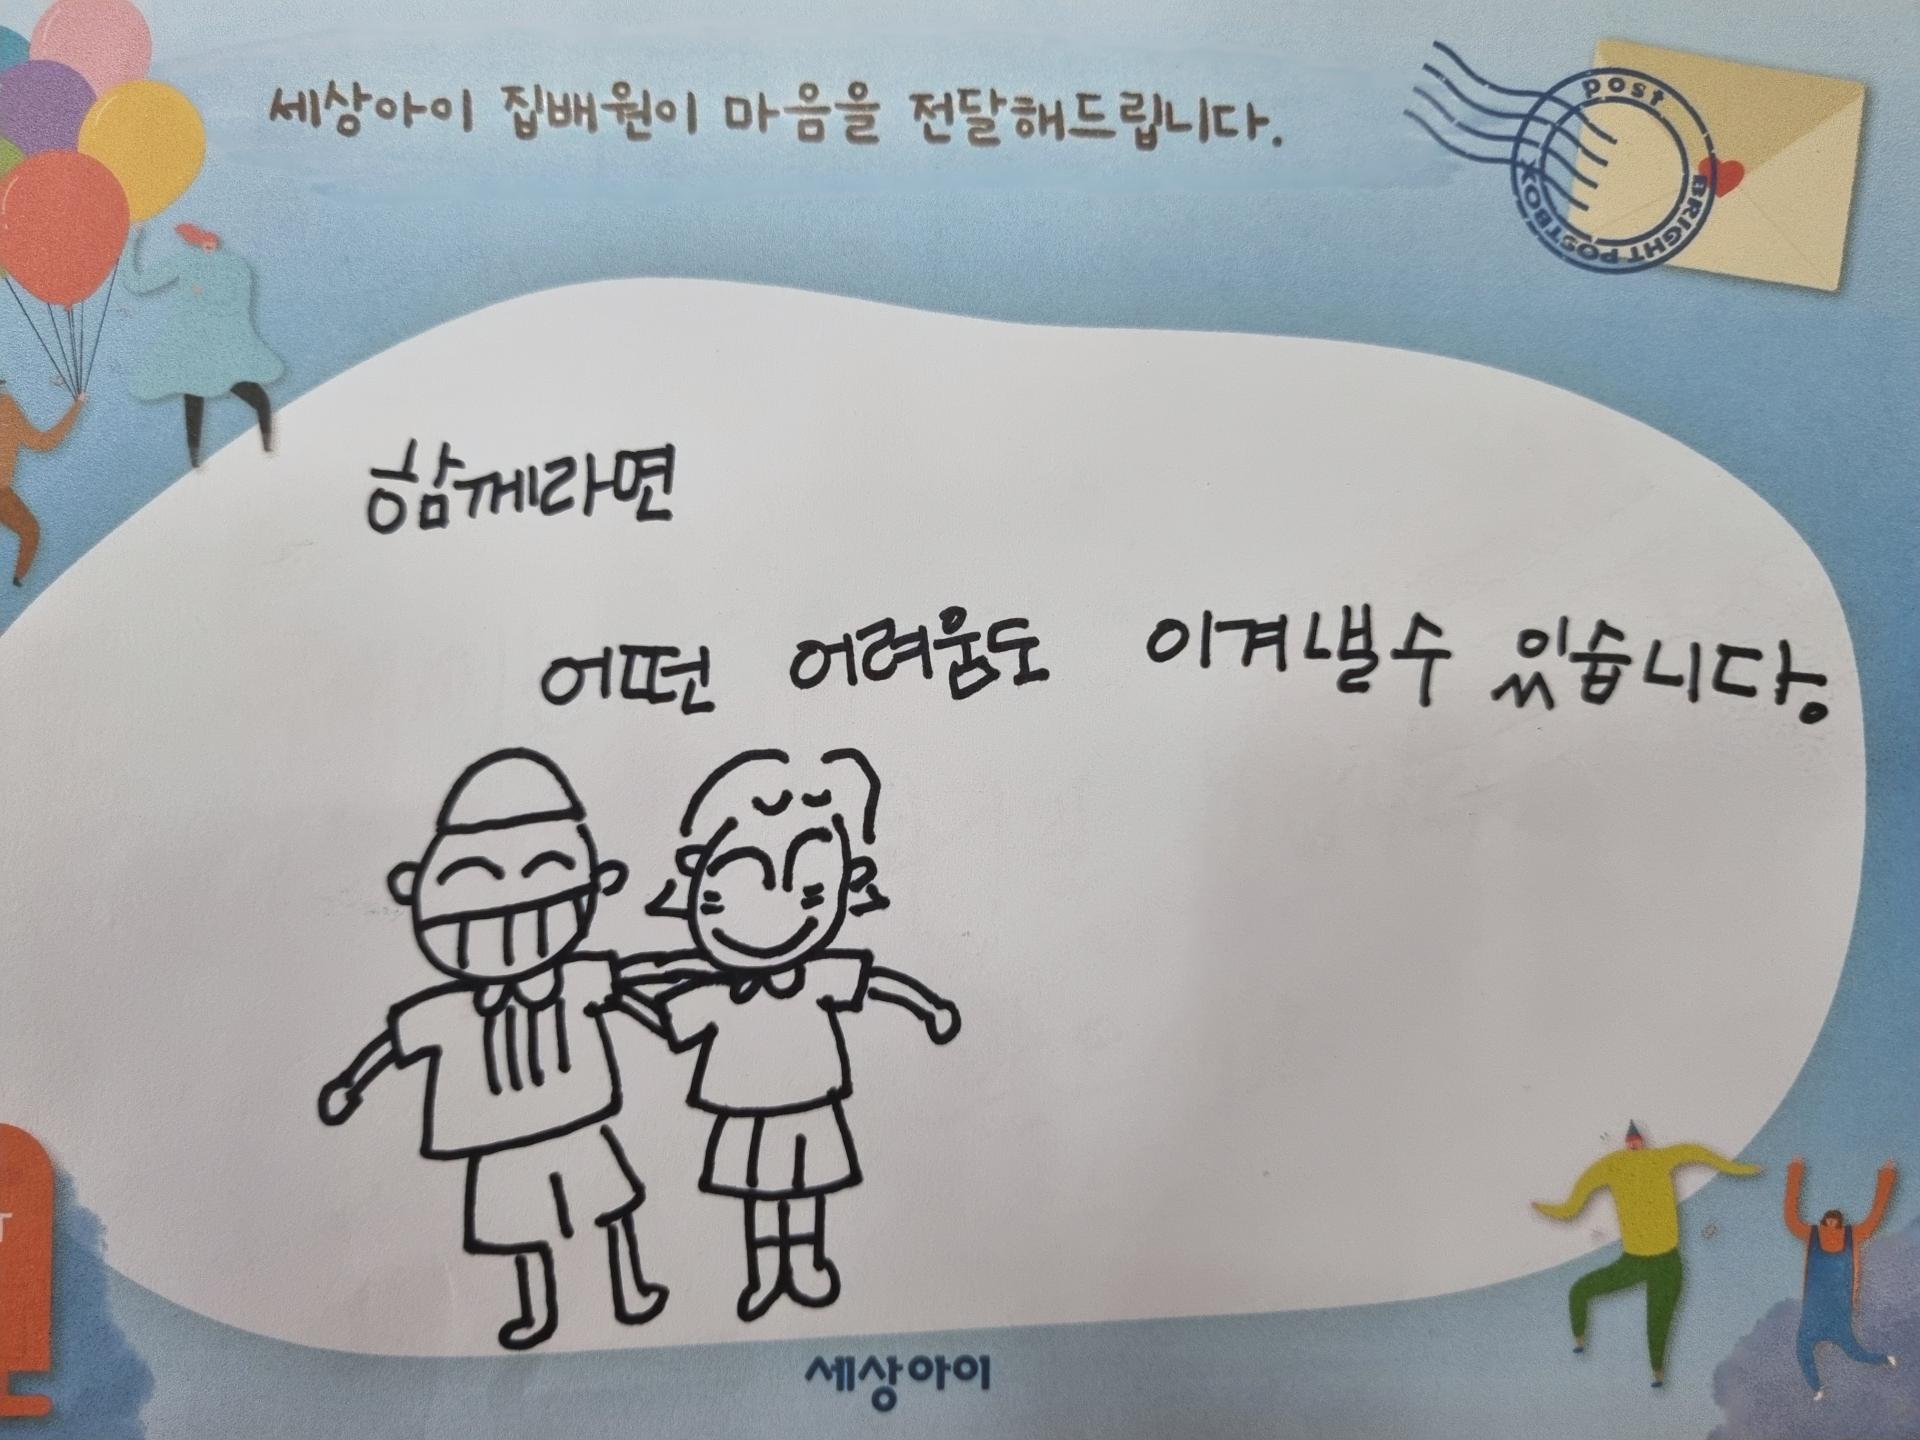 세상아이 집배원이 마음을 전달해드립니다.
post
BRIGHT POSTBOX
함께라면
어떤 어려움도 이겨낼수 있습니다.
세상아이